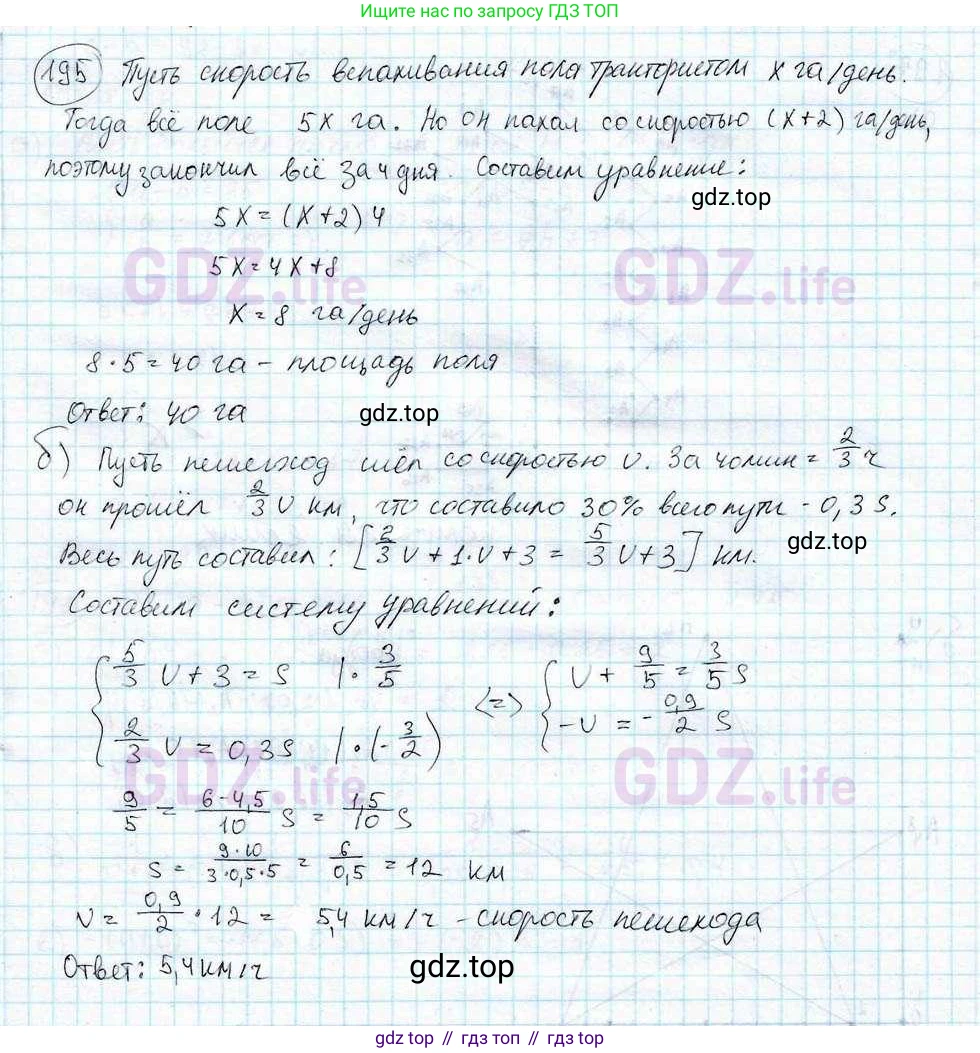 Ищите нас по запросу ГДЗ ТОП
195 Пусть скорость вспахивания поля трактористом x га/день.
Тогда всё поле 5x га. Но он пахал со скоростью (x+2) га/день,
поэтому закончил всё за 4 дня. Составим уравнение:
gdz.top
5x = (x+2)4
5x = 4x+8
GDZ.life GDZ.life
x = 8 га/день
8·5 = 40 га – площадь поля
Ответ: 40 га
gdz.top
б) Пусть пешеход шёл со скоростью v. За 40мин = 2/3 ч
он прошёл 2/3 v км, что составило 30% всего пути - 0,3 S.
gdz.top
Весь путь составил: [2/3 v + 1·v + 3 = 5/3 v + 3] км.
Составим систему уравнений:
{ 5/3 v + 3 = S |· 3/5 <=> { v + 9/5 = 3/5 S
2/3 v = 0,3S |·(- 3/2) -v = - 0,9/2 S
GDZ.life GDZ.life
9/5 = 6-4,5/10 S = 1,5/10 S
S = 9·10/3·0,5·5 = 6/0,5 = 12 км
v = 0,9/2 · 12 = 5,4 км/ч - скорость пешехода
Ответ: 5,4 км/ч
gdz.top
Решение взято с сайта: gdz.top // гдз.топ // гдз топ